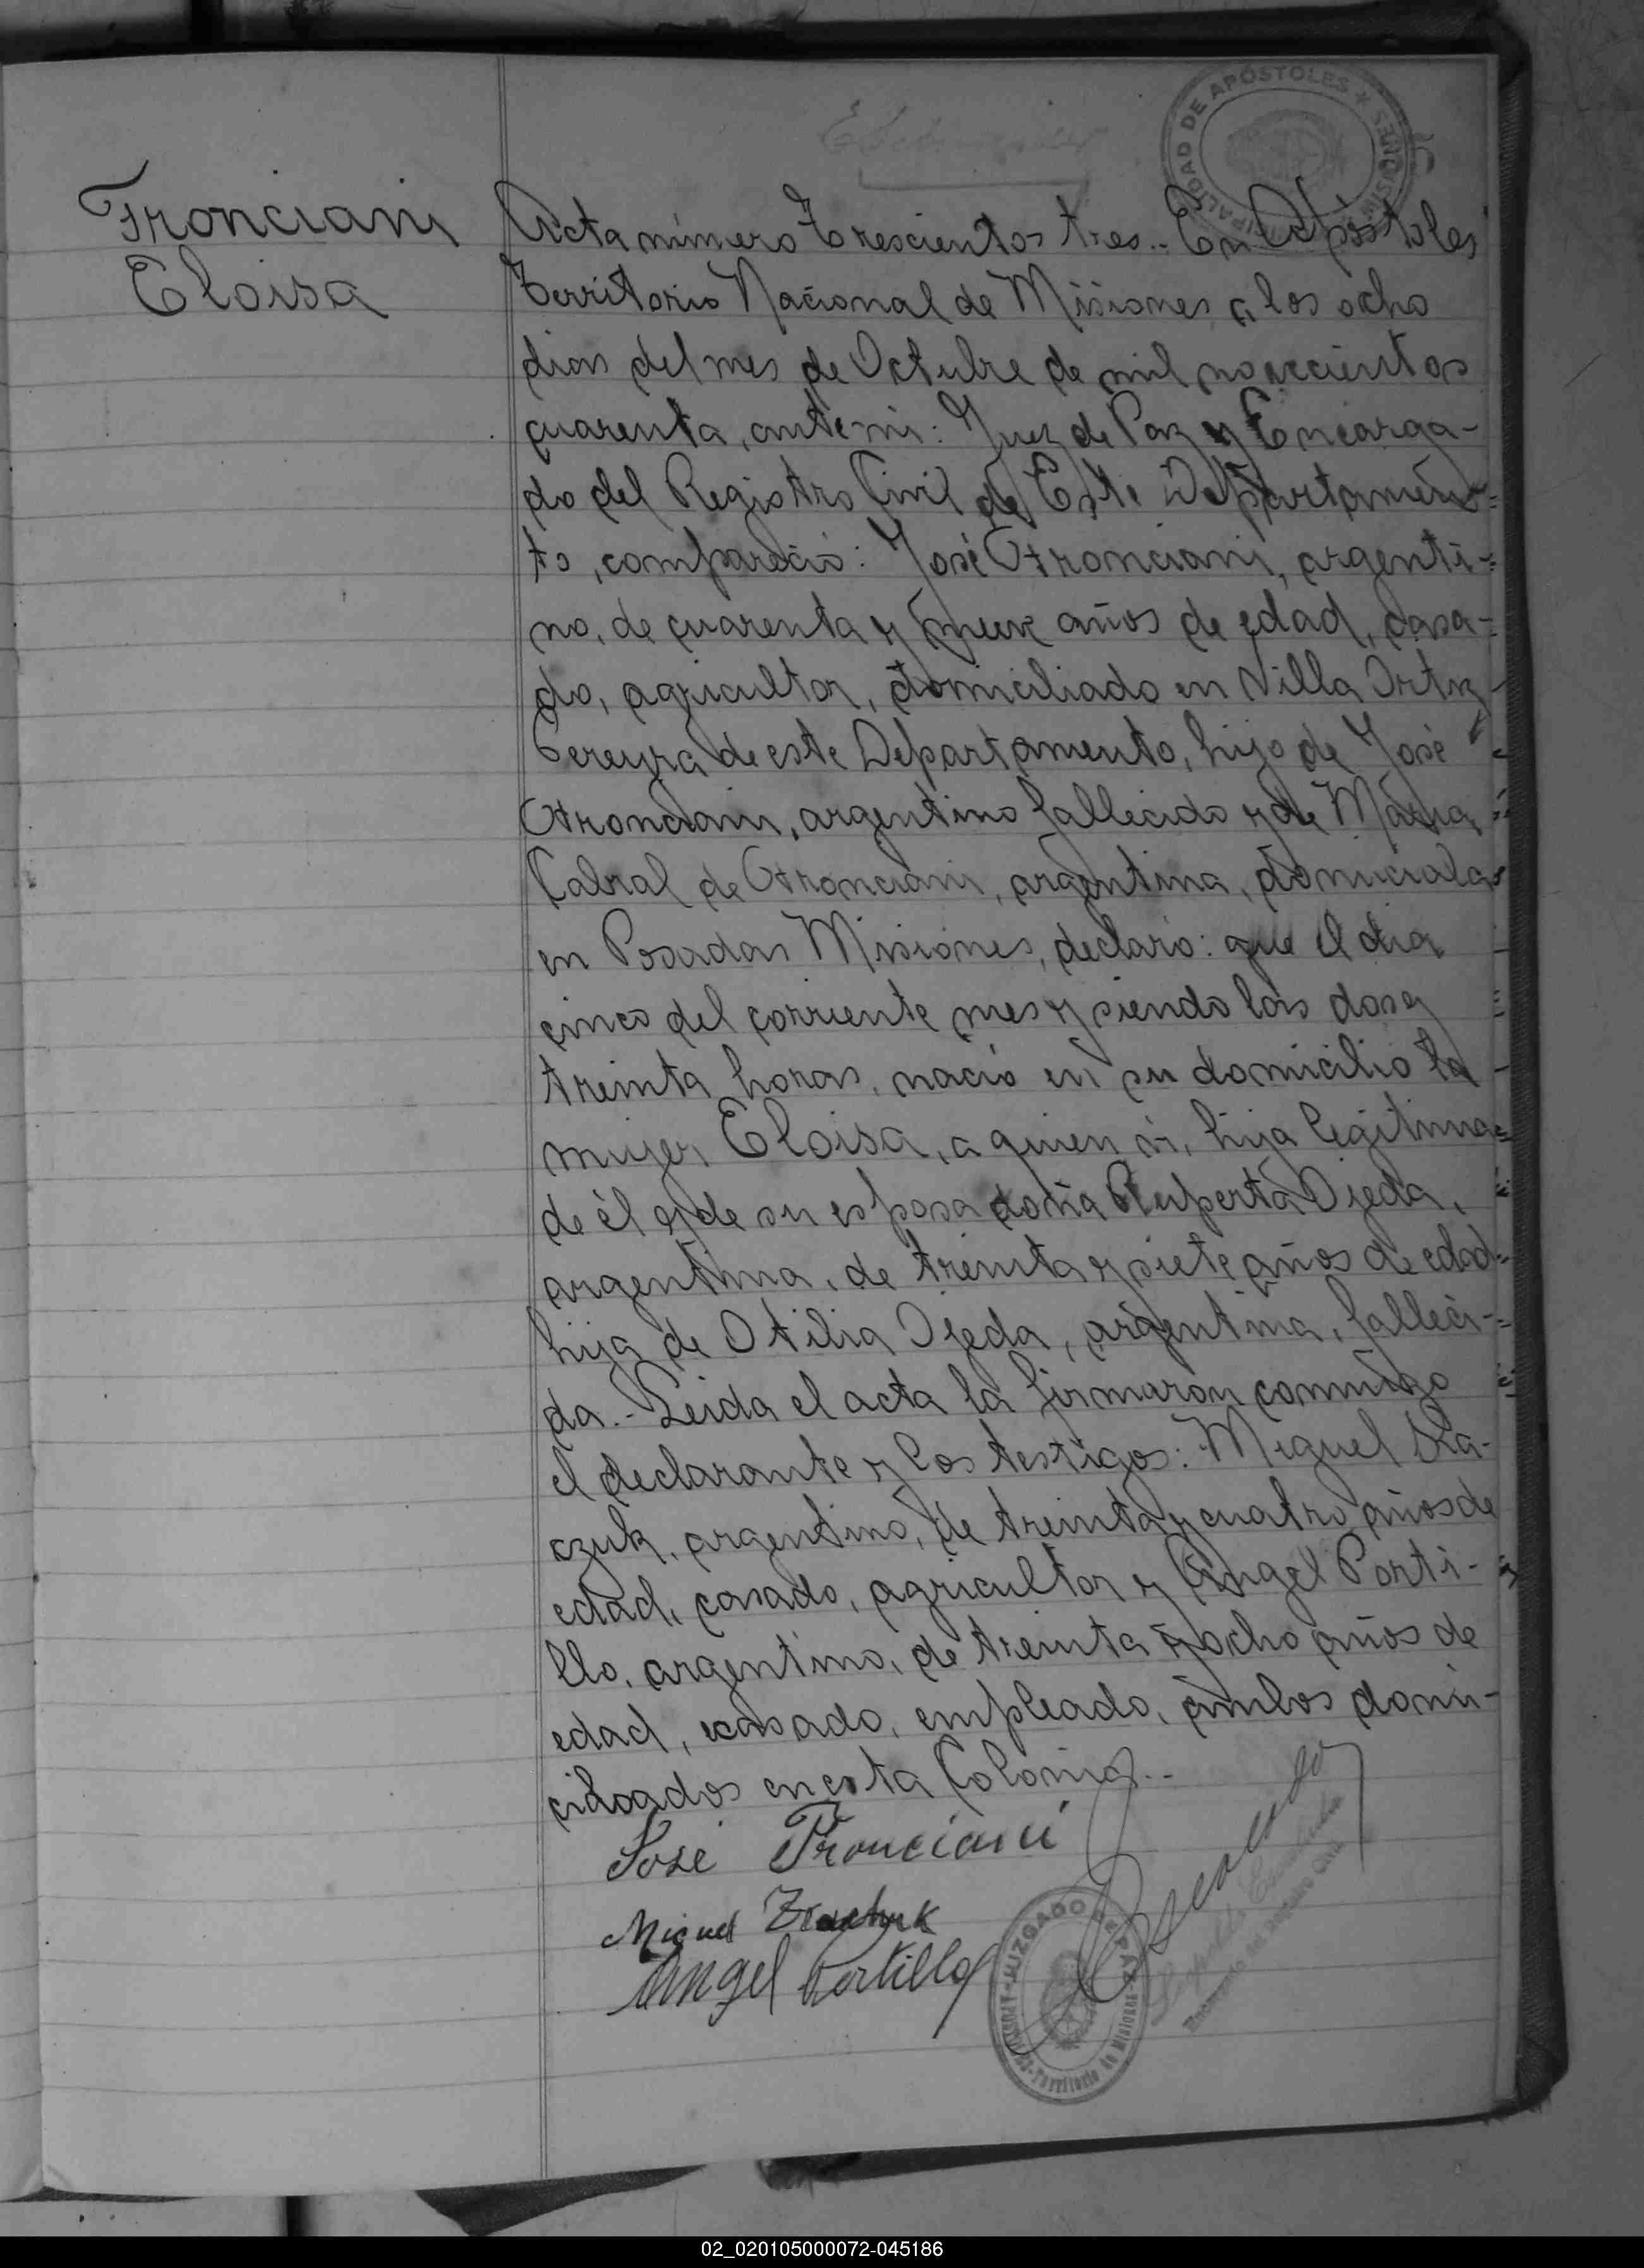 MUNICIPALIDAD DE APÓSTOLES ★ MISIONES
Fronciani
Eloisa
Acta número trescientos tres.- En Apóstoles
Territorio Nacional de Misiones a los ocho
dias del mes de Octubre de mil novecientos
cuarenta, ante mi: Juez de Paz y Encarga-
do del Registro Civil de Este Departamen-
to, compareció: José Fronciani, argenti-
no, de cuarenta y nueve años de edad, casa-
do, agricultor, domiciliado en Villa Ortiz
Pereyra de este Departamento, hijo de José
Fronciani, argentino fallecido y de Maria
Cabral de Fronciani, argentina, domicialada
en Posadas Misiones, declaró: que el dia
cinco del corriente mes y siendo las dos y
treinta horas, nació en su domicilio la
mujer Eloisa, a quien ví, hija legitima
de él y de su esposa doña Ruperta Ojeda,
argentina, de treinta y siete años de edad
hija de Otilia Ojeda, argentina, falleci-
da.- Leida el acta la firmaron conmigo
el declarante y los testigos: Miguel
czuk, argentino, de treinta y cuatro años de
edad, casado, agricultor y Angel Porti-
llo, argentino, de treinta y ocho años de
edad, casado, empleado, ambos domi-
ciloados en esta Colonia.-
José Fronciani
Miguel
Angel Portillo
JUZGADO DE PAZ
APOSTOLES-Territorio de Misiones
Encargado del Registro Civil
02_020105000072-045186